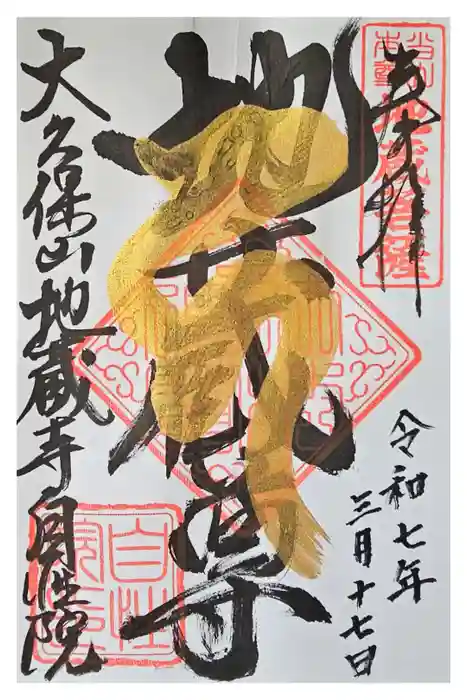 奉拝
地蔵尊
令和七年
三月十七日
大久保山地蔵寺自性院
自性
院